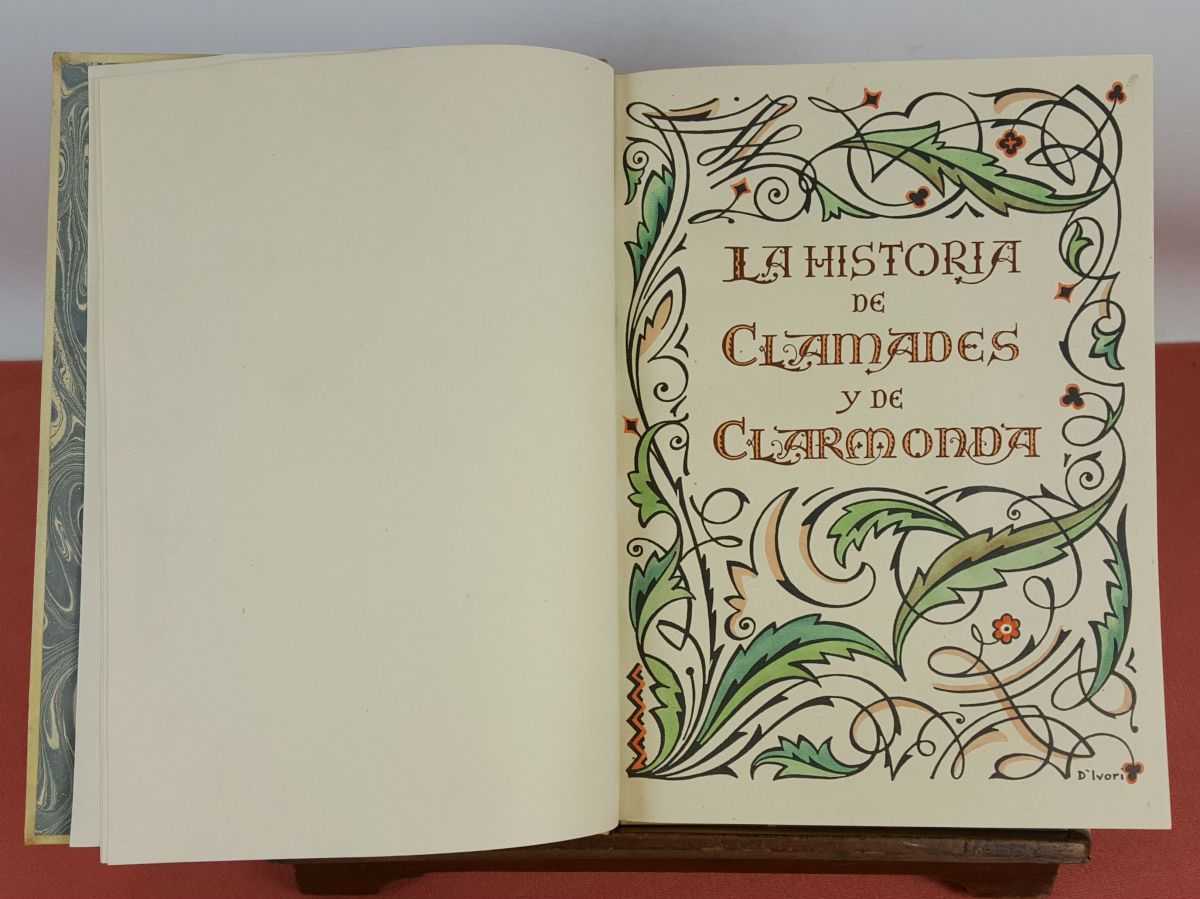 LA HISTORIA
DE
CLAMADES
Y DE
CLARMONDA
D'Ivori